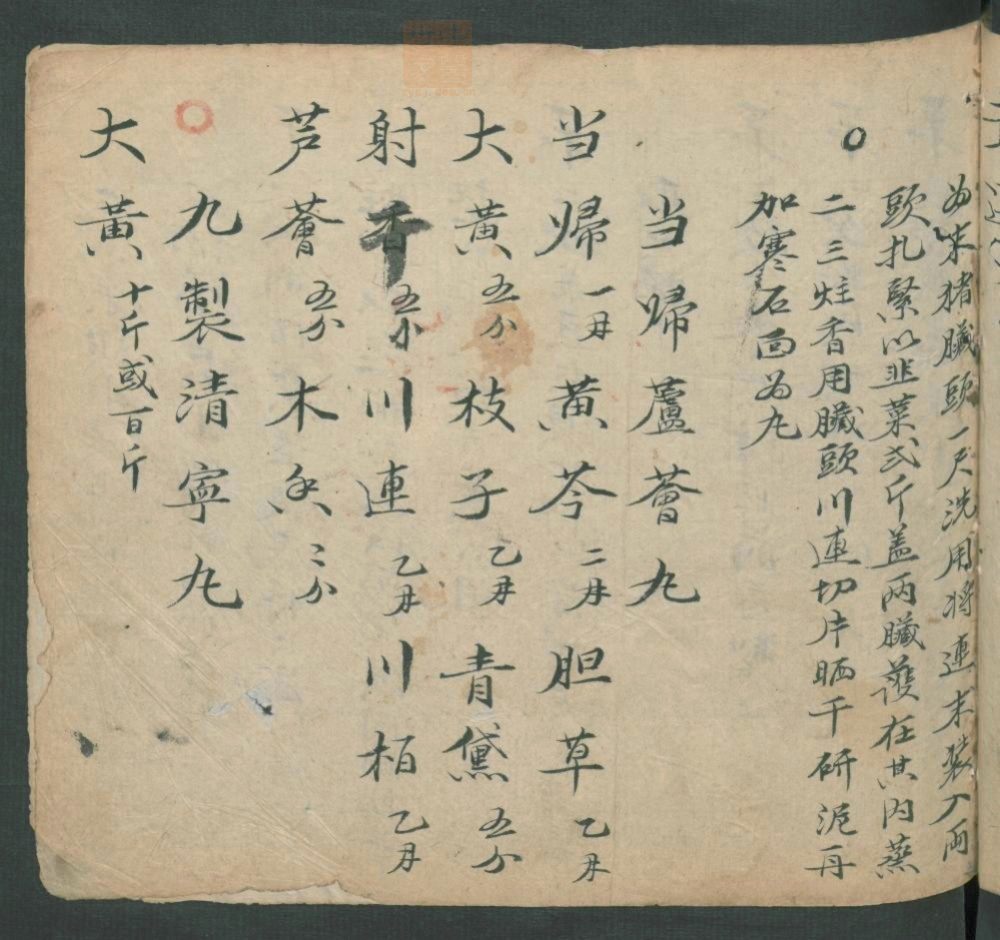 为末猪臟頭一尺洗用将連末裝入両
頭扎緊以韮菜弍斤盖両臟護在其内蒸
二三炷香用臟頭川連切片晒干研泥再
加寒石面为丸
当歸蘆薈丸
当歸一両黄芩二両胆草乙両
大黄五分枝子乙両青黛五分
射香五分川連乙両川栢乙両
芦薈五分木香二分
九製清寧丸
大黄十斤或百斤